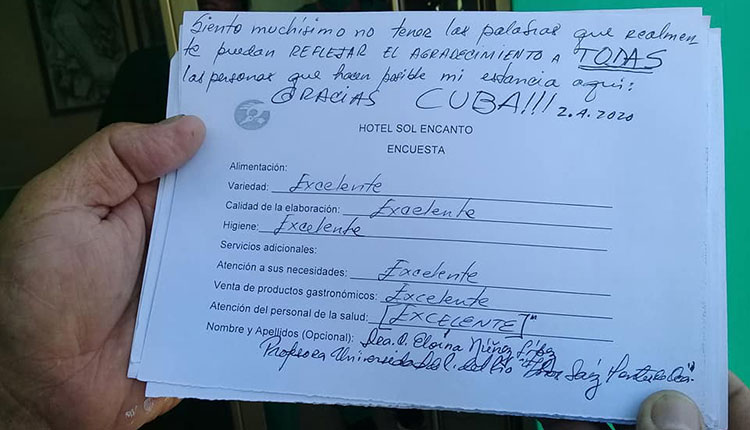 Siento muchísimo no tener las palabras que realmen-
te puedan REFLEJAR EL AGRADECIMIENTO A TODAS
las personas que hacen posible mi estancia aquí:
GRACIAS CUBA!!! 2.A.2020
HOTEL SOL ENCANTO
ENCUESTA
Alimentación:
Variedad: Excelente
Calidad de la elaboración: Excelente
Higiene: Excelente
Servicios adicionales:
Atención a sus necesidades: Excelente
Venta de productos gastronómicos: Excelente
Atención del personal de la salud: [EXCELENTE]"
Nombre y Apellidos (Opcional): Dra. Eloína Núñez
Profesora Universidad Río Saiz